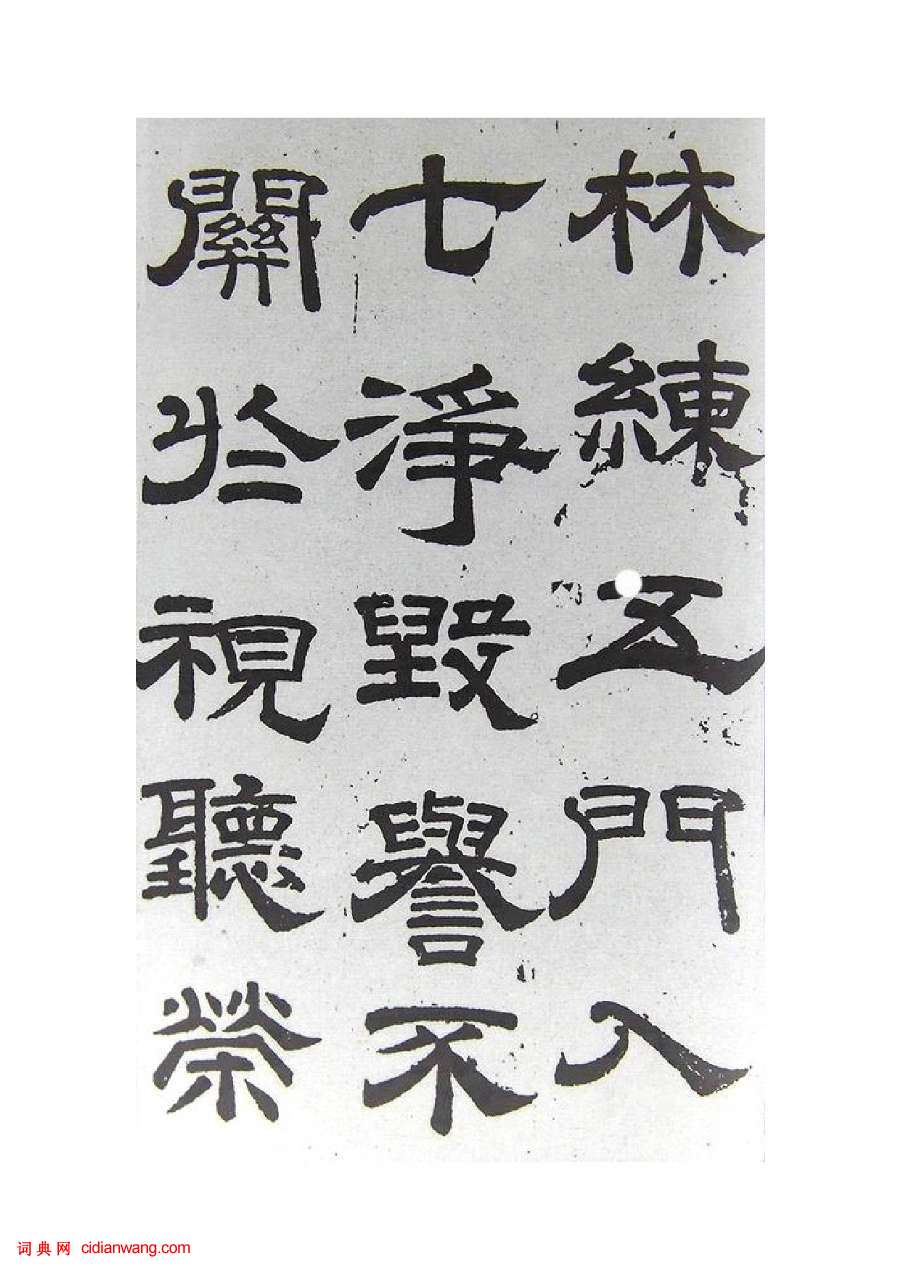 林練五門入
七淨毀譽不
關於視聽榮
词典网 cidianwang.com